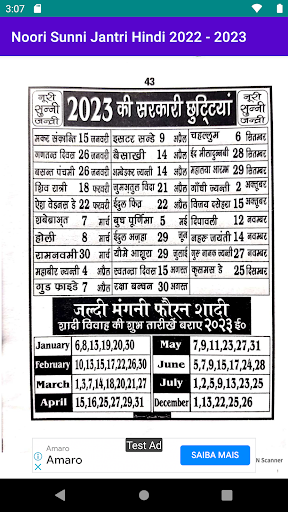 3:07
Noori Sunni Jantri Hindi 2022 - 2023
43
नूरी सुन्नी जन्त्री
2023 की सरकारी छुट्टियां
नूरी सुन्नी जन्त्री
मकर संक्रान्ति 15 जनवरी इसटर सन्डे 9 अप्रैल चहल्लुम 6 सितम्बर
गणतन्त्र दिवस 26 जनवरी बैसाखी 14 अप्रैल ईद मीलादुन्नबी 28 सितम्बर
बसन्त पंचमी 26 जनवरी अम्बेडकर जयन्ती 14 अप्रैल 29 सितम्बर
शिव रात्री 18 फरवरी जुमअतुल विदा 21 अप्रैल गाँधी जयन्ती 2 अक्तूबर
22 फरवरी ईदुल फित्र 22 अप्रैल विजय दसेहरा 15 अक्तूबर
शबेबराअत 7 मार्च बुध पूर्णिमा 5 मई दिपावली 12 नवम्बर
होली 8 मार्च ईदुल अज़हा 29 जून नहरू जयंती 14 नवम्बर
रामनवमी 30 मार्च यौमे आशूरा 29 जुलाई गुरु नानक जयन्ती 27 नवम्बर
महाबीर जयन्ती 4 अप्रैल स्वतन्त्रता दिवस 15 अगस्त क्रिसमस डे 25 दिसम्बर
गुड फ्राइडे 7 अप्रैल रक्षा बन्धन 30 अगस्त
जल्दी मंगनी फौरन शादी
शादी विवाह की शुभ तारीखें बराए 2023 ई०
January 6,8,13,19,20,30 May 7,9,11,23,27,31
February 10,13,15,17,22,26,30 June 5,7,9,15,17,24,28
March 1,3,7,14,18,20,21,27 July 1,2,5,9,13,23,25
April 15,16,25,27,29,31 December 1,13,22,25,26
Test Ad
Amaro
Amaro
SAIBA MAIS
N Scanner